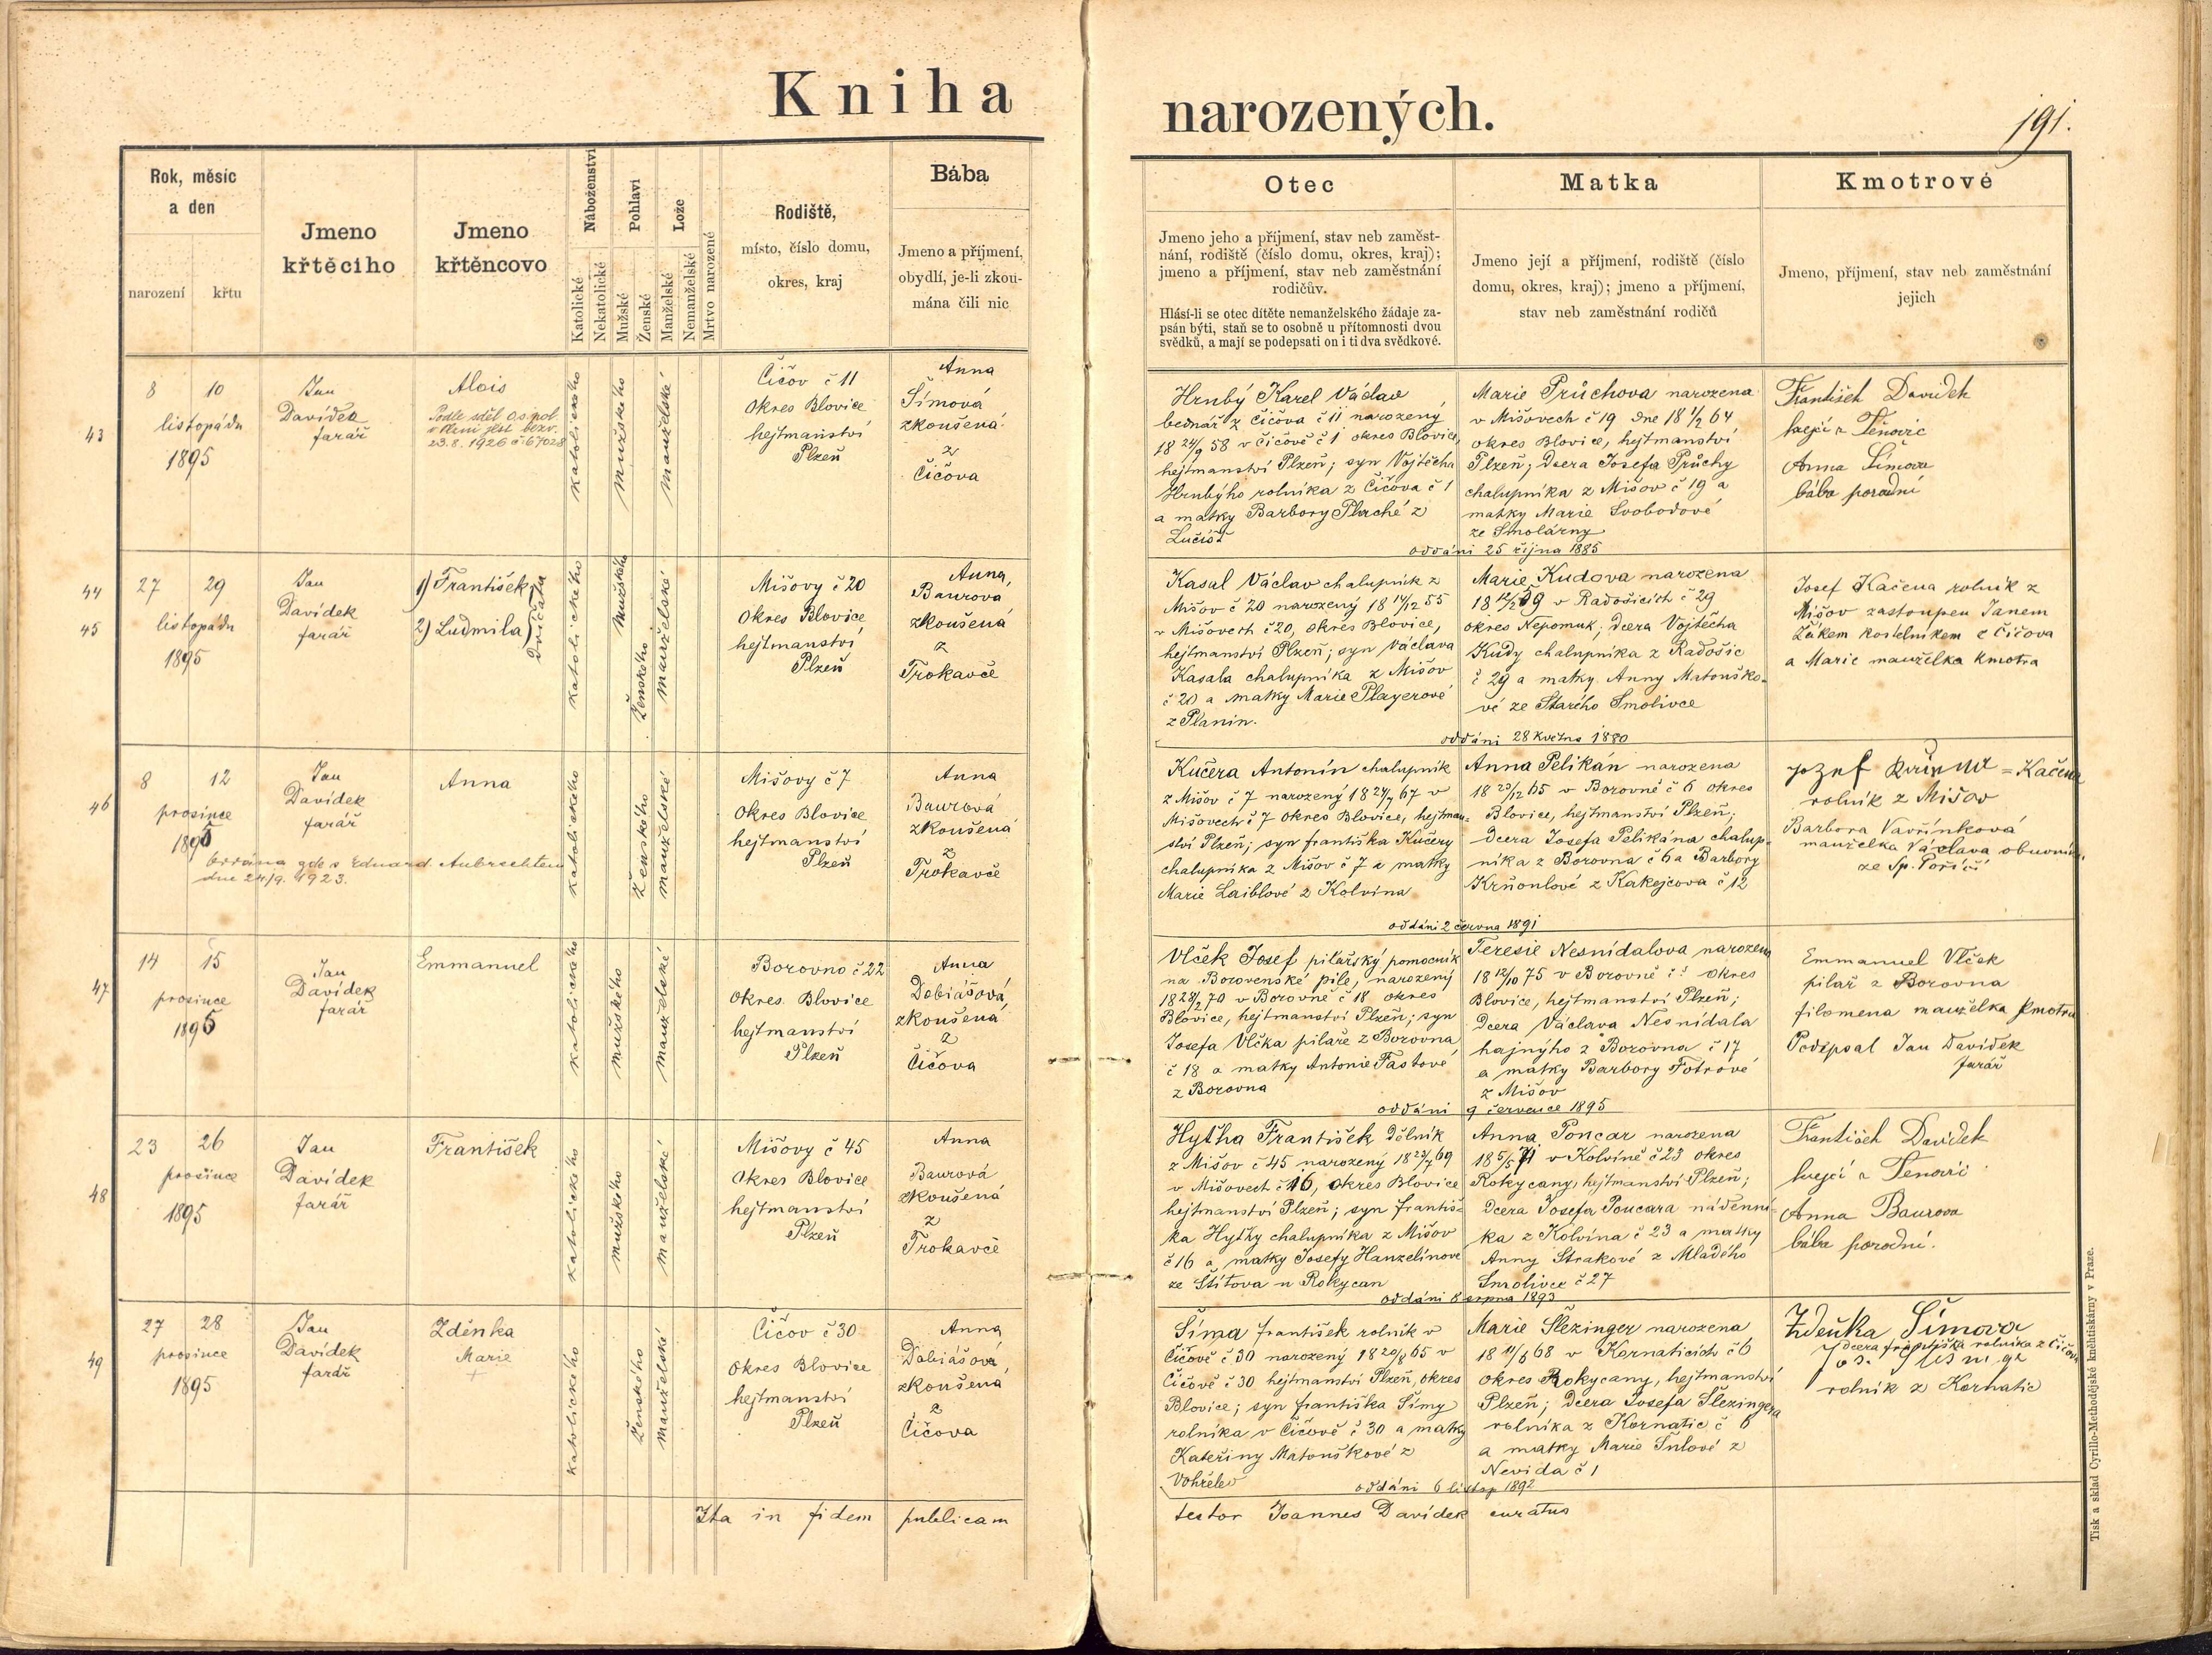 Kniha narozených.
191.
Rok, měsíc
a den
narození křtu
Jmeno
křtěcího
Jmeno
křtěncovo
Náboženství
Katolické
Nekatolické
Pohlaví
Mužské
Ženské
Lože
Manželské
Nemanželské
Mrtvo narozené
Rodiště,
místo, číslo domu,
okres, kraj
Bába
Jmeno a příjmení,
obydlí, je-li zkou-
mána čili nic
Otec
Jmeno jeho a příjmení, stav neb zaměst-
nání, rodiště (číslo domu, okres, kraj);
jmeno a příjmení, stav neb zaměstnání
rodičův.
Hlásí-li se otec dítěte nemanželského žádaje za-
psán býti, staň se to osobně u přítomnosti dvou
svědků, a mají se podepsati on i ti dva svědkové.
Matka
Jmeno její a příjmení, rodiště (číslo
domu, okres, kraj); jmeno a příjmení,
stav neb zaměstnání rodičů
Kmotrové
Jmeno, příjmení, stav neb zaměstnání
jejich
43
8 10
listopádu
1895
Jan
Davídek
farář
Alois
23.8.1926 č 67028
katolického
mužského
manželské
Čičov č 11
Okres Blovice
hejtmanství
Plzeň
Anna
Šímová
zkoušená
z
Čičova
Hrubý Karel Václav
bednář z Čičova č 11 narozený
18 24/9 58 v Čičově č 1 okres Blovice,
hejtmanství Plzeň; syn Vojtěcha
Hrubýho rolníka z Čičova č 1
a matky Barbory z
Lučišť
Marie Průchova narozena
v Mišovech č 19 dne 18 1/2 64
okres Blovice, hejtmanství
Plzeň; dcera Josefa Průchy
chalupníka z Mišov č 19 a
matky Marie Svobodové
ze Smolárny
oddáni 25 října 1885
František Davidek
krejčí z Těnovic
Anna Šimova
bába porodní
44
45
27 29
listopádu
1895
Jan
Davídek
farář
1) František
2) Ludmila
dvíčata
katolického
mužského
Ženského
manželské
Mišovy č 20
Okres Blovice
hejtmanství
Plzeň
Anna,
Baurová
zkoušená
z
Trokavče
Kasal Václav chalupník z
Mišov č 20 narozený 18 14/12 55
v Mišovech č 20, okres Blovice,
hejtmanství Plzeň; syn Václava
Kasala chalupníka z Mišov
č 20 a matky Marie Playerové
z Planin.
Marie Kudova narozena
v Radošicích č 29
okres Nepomuk; dcera Vojtěcha
Kudy chalupníka z Radošic
č 29 a matky Anny Matouško-
vé ze Starého Smolivce
oddáni 28 května 1880
Josef Kačena rolník z
Mišov zastoupen Janem
Žákem kostelníkem z Čičova
a Marie manželka kmotra
46
8 12
prosince
1895
Jan
Davídek
farář
Anna
oddána s Eduard. Aubrechtem
dne 24/9. 1923.
katolického
Ženského
manželské
Mišovy č 7
Okres Blovice
hejtmanství
Plzeň
Anna
Baurová
zkoušená
z
Trokavče
Kučera Antonín chalupník
z Mišov č 7 narozený 18 24/7 67 v
Mišovech č 7 okres Blovice, hejtman-
ství Plzeň; syn františka Kučery
chalupníka z Mišov č 7 a matky
Marie Laiblové z Kolvína
Anna Pelikán narozena
18 23/12 65 v Borovně č 6 okres
Blovice, hejtmanství Plzeň;
dcera Josefa Pelikána chalup-
níka z Borovna č 6 a Barbory
Krňoulové z Kakejcova č 12
oddáni 2 června 1891
Jozef = Kačena
rolník z Mišov
Barbora Vavřínková
manželka Václava obuvníka
ze Sp. Poříčí
47
14 15
prosince
1895
Jan
Davídek
farář
Emmanuel
katolického
mužského
manželské
Borovno č 22
Okres Blovice
hejtmanství
Plzeň
Anna
Dobiášová,
zkoušená
z
Čičova
Vlček Josef pilařský pomocník
na Borovenské pile, narozený
18 28/2 70 v Borovně č 18 okres
Blovice, hejtmanství Plzeň; syn
Josefa Vlčka pilaře z Borovna
č 18 a matky Antonie Tástové
z Borovna
Teresie Nesnídalova narozena
18 12/10 75 v Borovně okres
Blovice, hejtmanství Plzeň;
dcera Václava Nesnídala
hajnýho z Borovna č 17
a matky Barbory Fotrové
z Mišov
oddáni 9 července 1895
Emmanuel Vlček
pilař z Borovna
filomena manželka kmotra
Podepsal Jan Davídek
farář
48
23 26
prosince
1895
Jan
Davídek
farář
František
katolického
mužského
manželské
Mišovy č 45
Okres Blovice
hejtmanství
Plzeň
Anna
Baurová
zkoušená
z
Trokavče
Hyťha František dělník
z Mišov č 45 narozený 18 23/7 69
v Mišovech č 16, okres Blovice
hejtmanství Plzeň; syn františ-
ka Hyťhy chalupníka z Mišov
č 16 a matky Josefy Hanzelínové
ze Štítova u Rokycan
Anna Poncar narozena
18 5/5 71 v Kolvíně č 23 okres
Rokycany, hejtmanství Plzeň;
dcera Josefa Poncara nádenní-
ka z Kolvína č 23 a matky
Anny Strakové z Mladého
Smolivce č 27
oddáni 8 srpna 1893
František Davidek
krejčí z
Anna Baurova
bába porodní.
49
27 28
prosince
1895
Jan
Davídek
farář
Zděnka
Marie
+
katolického
Ženského
manželské
Čičov č 30
Okres Blovice
hejtmanství
Plzeň
Anna
Dobiášová
zkoušená
z
Čičova
Šíma františek rolník v
Čičově č 30 narozený 18 20/8 65 v
Čičově č 30 hejtmanství Plzeň, okres
Blovice; syn františka Šímy
rolníka v Čičově č 30 a matky
Kateřiny Matouškové z
Vohřeled
Marie Šlezinger narozena
v Kornaticích č 6
okres Rokycany, hejtmanství
Plzeň; dcera Josefa Šlezingera
rolníka z Kornatic č 6
a matky Marie Šulové z
Nevida č 1
oddáni 6 listop 1892
Zdeňka Šimova
dcera františka rolníka z Čičova
rolník z Kornatic
Ita in fidem publicam
testor Joannes Davídek curatus
Tisk a sklad Cyrillo-Methodějské kněhtiskárny v Praze.